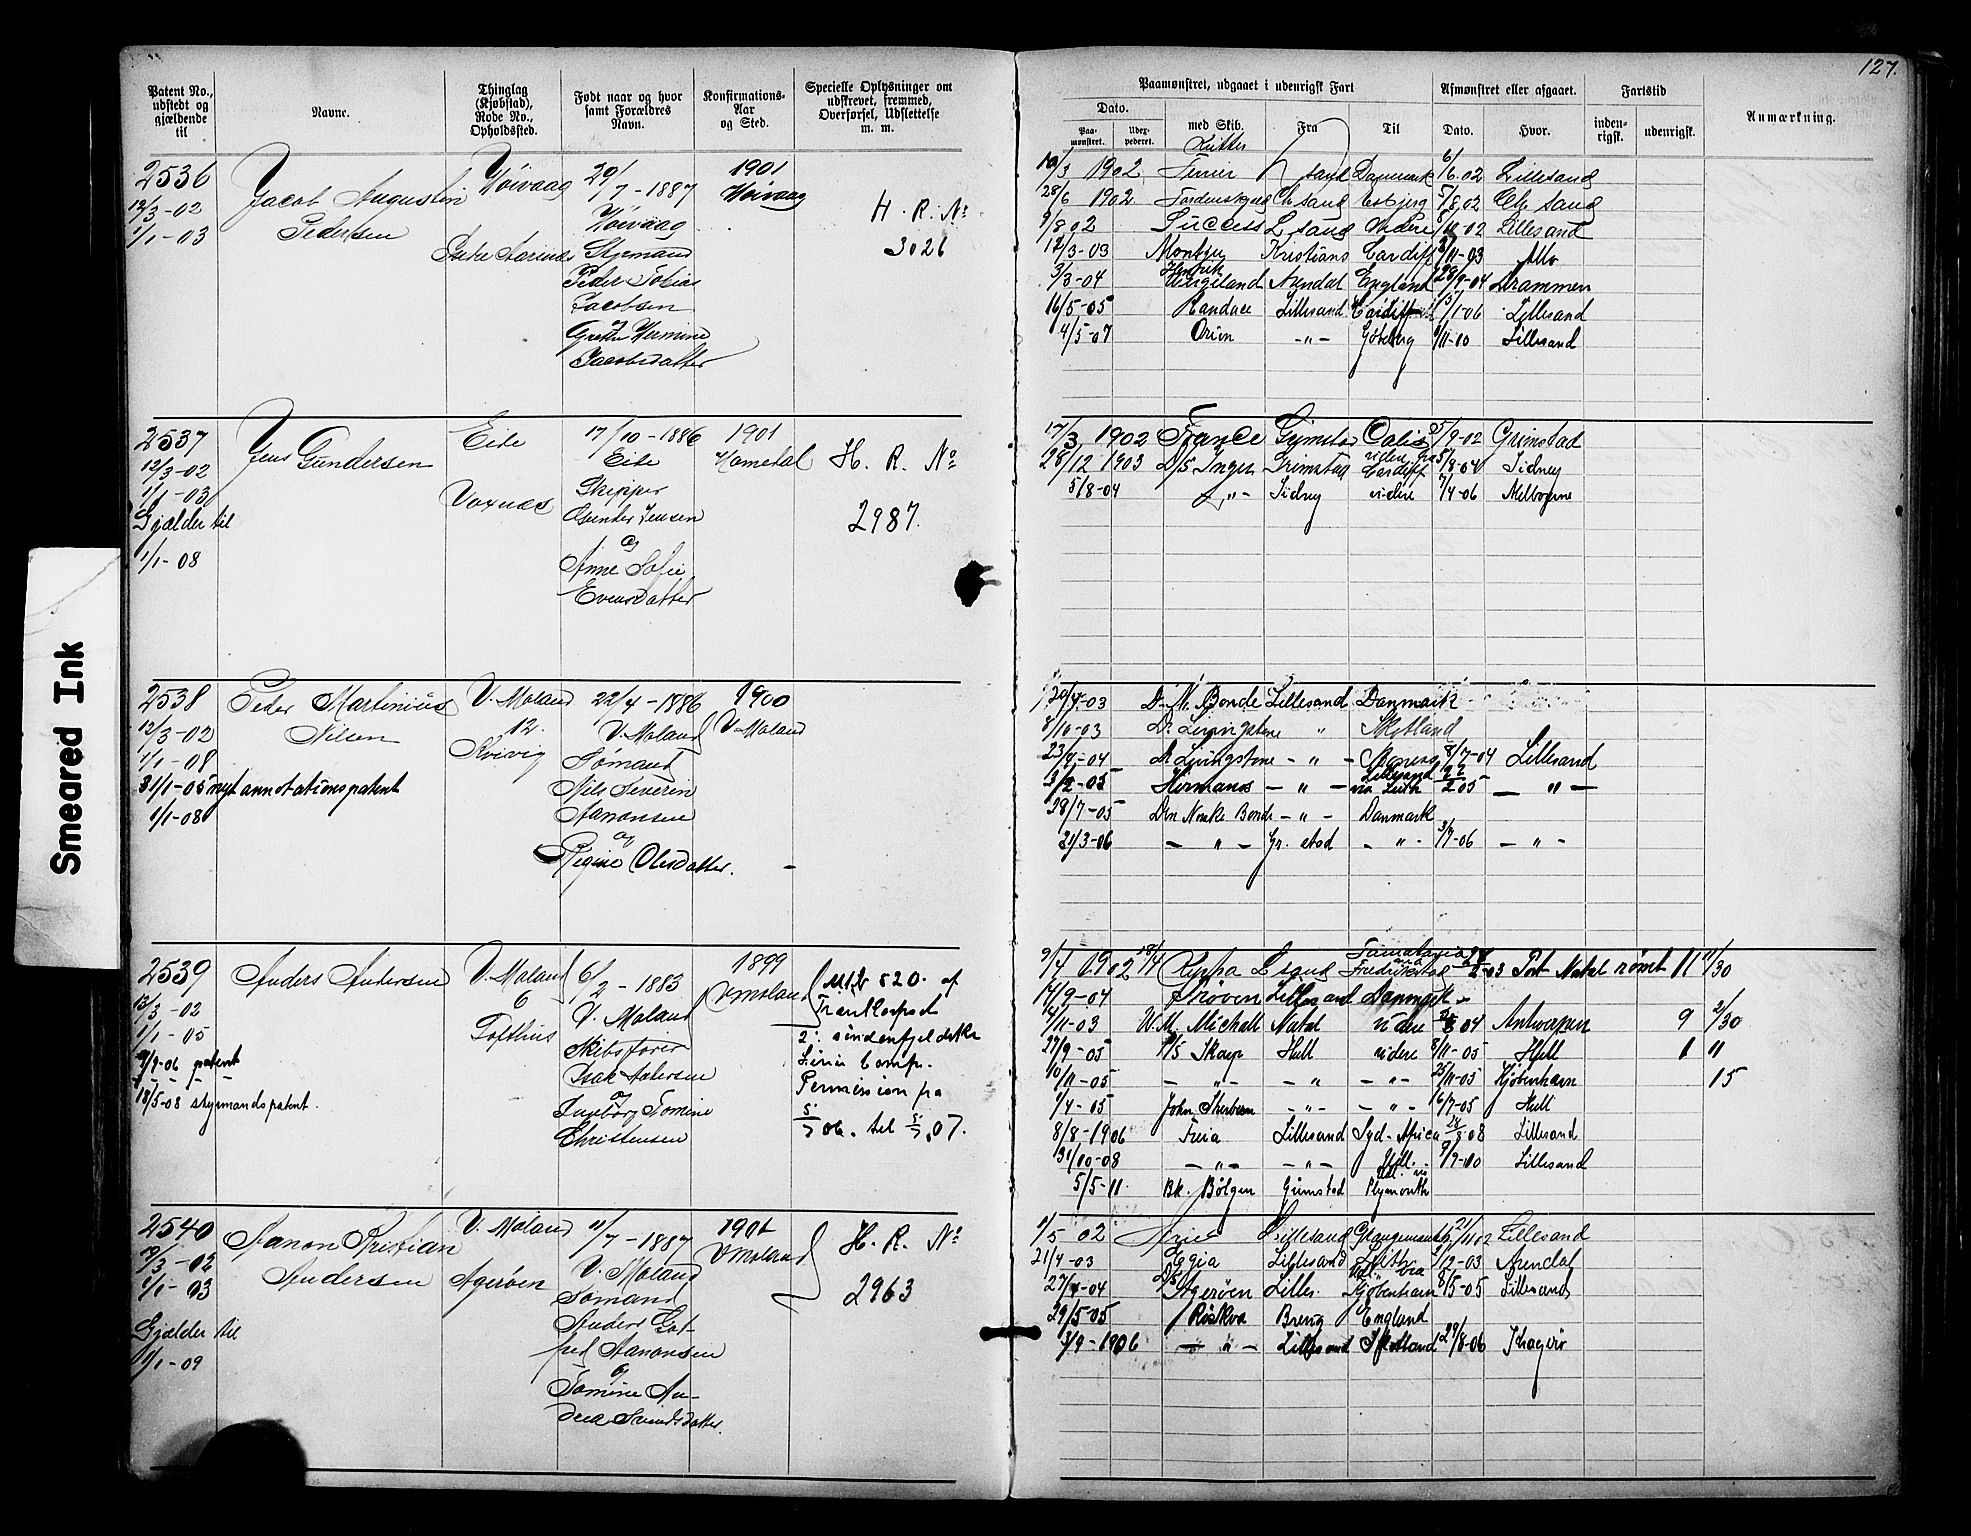 127.
Patent No., udstedt og gjældende til
Navne.
Thinglag (Kjøbstad), Rode No., Opholdssted.
Født naar og hvor samt Forældres Navn.
Konfirmations-Aar og Sted.
Specielle Oplysninger om udskrevet, fremmed, Overførsel, Udslettelse m. m.
Paamønstret, udgaaet i udenrigsk Fart
Dato.
Paa-mønstret.
Udex-pederet.
med Skib.
Fra
Til
Afmønstret eller afgaaet.
Dato.
Hvor.
Fartstid
inden-rigsk.
udenrigsk.
Anmærkning.
Smeared Ink
2536
12/3-02
1/1-03
Jacob Augustin
Pedersen
Høivaag
29/7-1887
Høivaag
Styrmand
Peder Tobias
Jacobsen
og
Grethe Hermine
Jacobsdatter
1901
Høivaag
H. R. No
3026
Kutter
1902 Danmark 6/6.02 Lillesand
28/6 1902 Esbjerg 5/8.02 Ch sand
9/8 02 Success L sand Lillesand
12/3-03 Kristians Cardiff
3/3-04 Henrik Wergeland Arendal England Drammen
16/5-05 Lillesand Cardiff 1-06 Lillesand
4/5-07 Orion -"- 11-10 Lillesand
2537
12/3-02
1/1-03
Gjælder til
1/1-08
Jens Gundersen
Eide
Vaxnes
17/10-1886
Eide
Skipper
Gunder Jensen
og
Anne Sofie
Evensdatter
1901
Homedal
H. R. No
2987.
17/3 1902 France Grimstad Calis 5/9-02 Grimstad
28/12 1903 D/S Inger Grimstad Cardiff 5/8-04 Sidney
5/8-04 -"- Sidney videre 7/4-06 Melbourne
2538
12/3-02
1/1-08
31/1-05 nyt annotationspatent
1/1-08
Peder Martinius
Nilsen
V. Moland
12.
Kvivig
22/4-1886
V. Moland
Sømand
Nils Severin
Aanonsen
og
Regine Olsdatter.
1900
V. Moland
20/4-03 D. N. Bonde Lillesand Danmark
8/10-03 D. Livingstone " Skotland
23/4-04 D. Livingstone -"- 8/7-04 Lillesand
3/2-05 Hermanos -"- Lillesand via Leith 22/2 05 -"-
28/7-05 Den Norke Bonde -"- Danmark
21/3-06 -"- Gr. stad -"- 3/7-06 -"-
2539
12/3-02
1/1-05
9/9-06 patent
18/5-08 styrmandspatent.
Anders Andersen
V. Moland
6
Tofthus
6/2-1883
V. Moland
Skibsfører
Isak Andersen
og
Ingeborg Tomine
Christensen
1899
V moland
820. af
2: søndenfjeldske
Linie Comp.
Permission fra
5/7 06. til 5/7.07.
1902 18/4 L sand Fredrikstad 2-03 Port Natal rømt 11 11/30
14/9-04 Prøven Lillesand Danmark
4/11-03 W. M. Michall Natal videre 04 Antwerpen 9 2/30
27/9-05 D/S Skarp Hull videre 8/11-05 Hull 1 11
10/11-05 -"- -"- -"- 25/11-05 Kjøbenhavn 15
1/4-05 John -"- -"- 6/7-05 Hull
8/8-1906 Freia Lillesand Syd-Africa 28/8 08 Lillesand
31/10-08 -"- -"- 9/9-10 Lillesand
5/5-11. Bk. Bølgen Grimstad via Plymouth
2540
19/3-02
1/1-03
Gjælder til
1/1-09
Aanon Kristian
Andersen
V. Moland
Agerøen
11/7-1887
V. Moland
Sømand
Anders Got-
fred Aanonsen
og
Tomine An-
drea Svendsdatter.
1901
V moland
H. R. No
2963
1/5 02 Aries Lillesand Grangemouth 21/11 02 Lillesand
21/4-03 Lillesand Leith 12-03 Arendal
27/4-04 Agerøen Lilles. via Kjøbenhavn 8/5-05 Lillesand
29/5-05 Riskva England
3/9-1906 -"- Lillesand Skotland 29/8-06 Kragerø